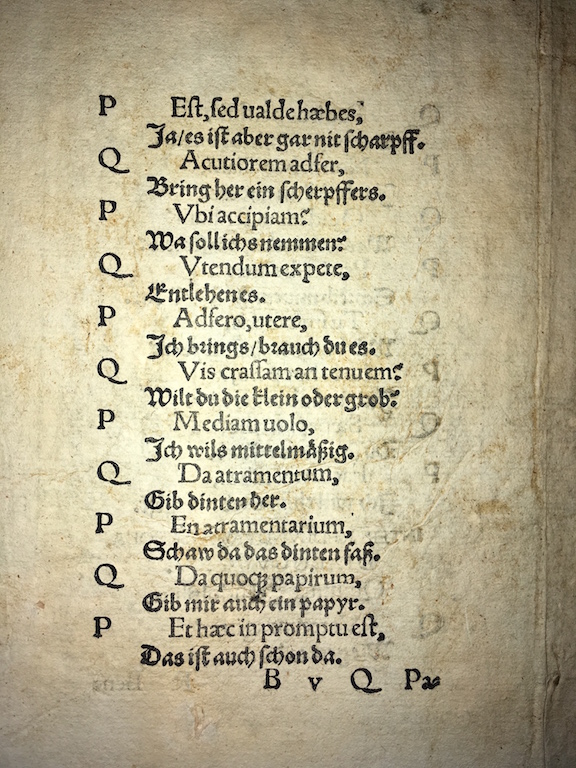 P Est, sed ualde hæbes,
Ja/es ist aber gar nit scharpff.
Q Acutiorem adfer,
Bring her ein scherpffers.
P Vbi accipiam?
Wa soll ichs nemmen?
Q Vtendum expete,
Entlehen es.
P Adfero, utere,
Ich brings/brauch du es.
Q Vis crassam an tenuem?
Wilt du die klein oder grob?
P Mediam uolo,
Ich wils mittelmåßig.
Q Da atramentum,
Gib dinten her.
P En atramentarium,
Schaw da das dinten faß.
Q Da quoqꝫ papirum,
Gib mir auch ein papyr.
P Et hæc in promptu est,
Das ist auch schon da.
B v Q Pa-